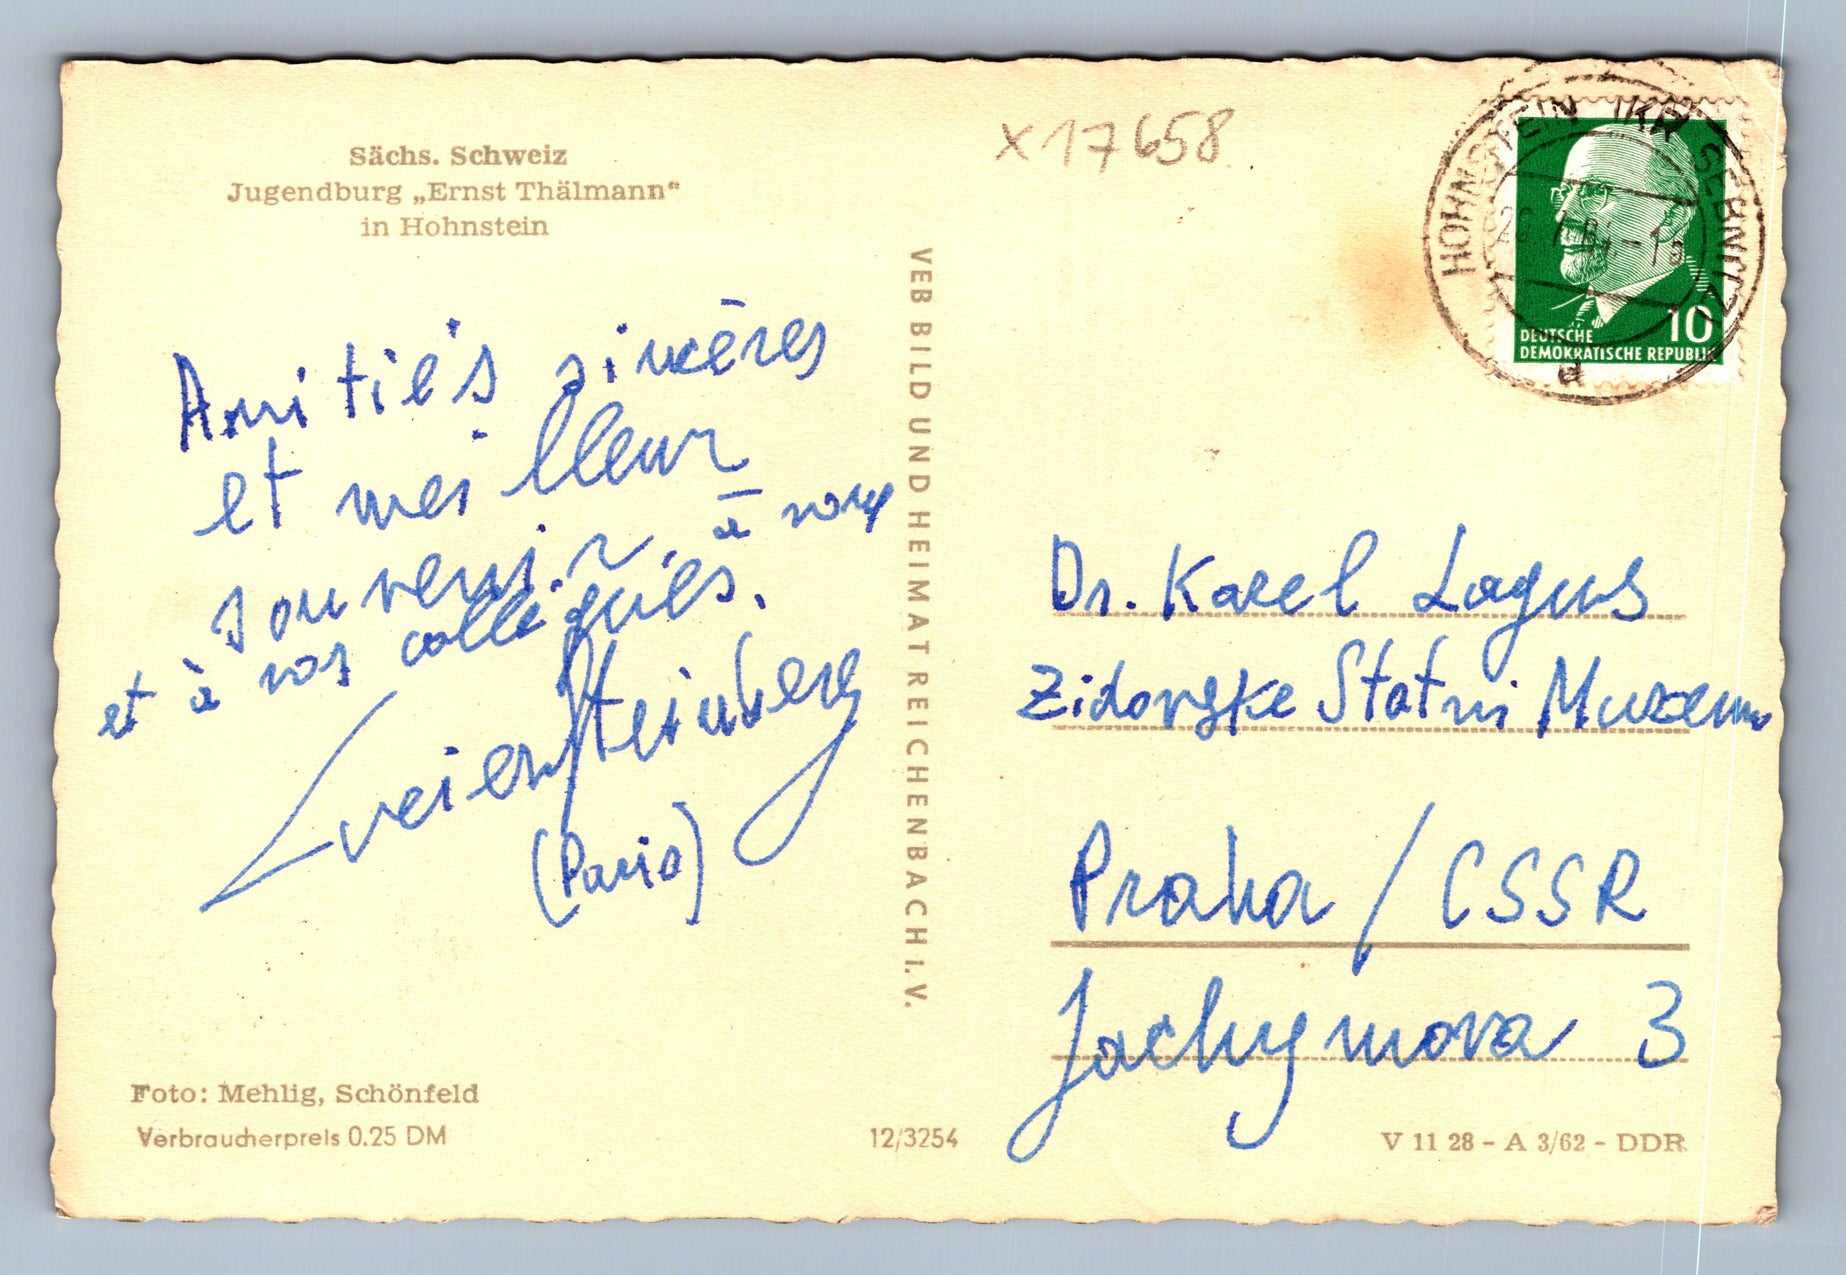 Sächs. Schweiz
Jugendburg „Ernst Thälmann“
in Hohnstein
x 17658
HOHNSTEIN (KR SEBNITZ)
d
10
DEUTSCHE
DEMOKRATISCHE REPUBLIK
VEB BILD UND HEIMAT REICHENBACH I. V.
Amitiés sincères
et meilleur
souvenir à vous
et à vos collègues.
Steinberg
(Paris)
Dr. Karel Lagus
Zidovske Statni Muzeum
Praha / CSSR
Jachymova 3
Foto: Mehlig, Schönfeld
Verbraucherpreis 0.25 DM
12/3254
V 11 28 – A 3/62 – DDR